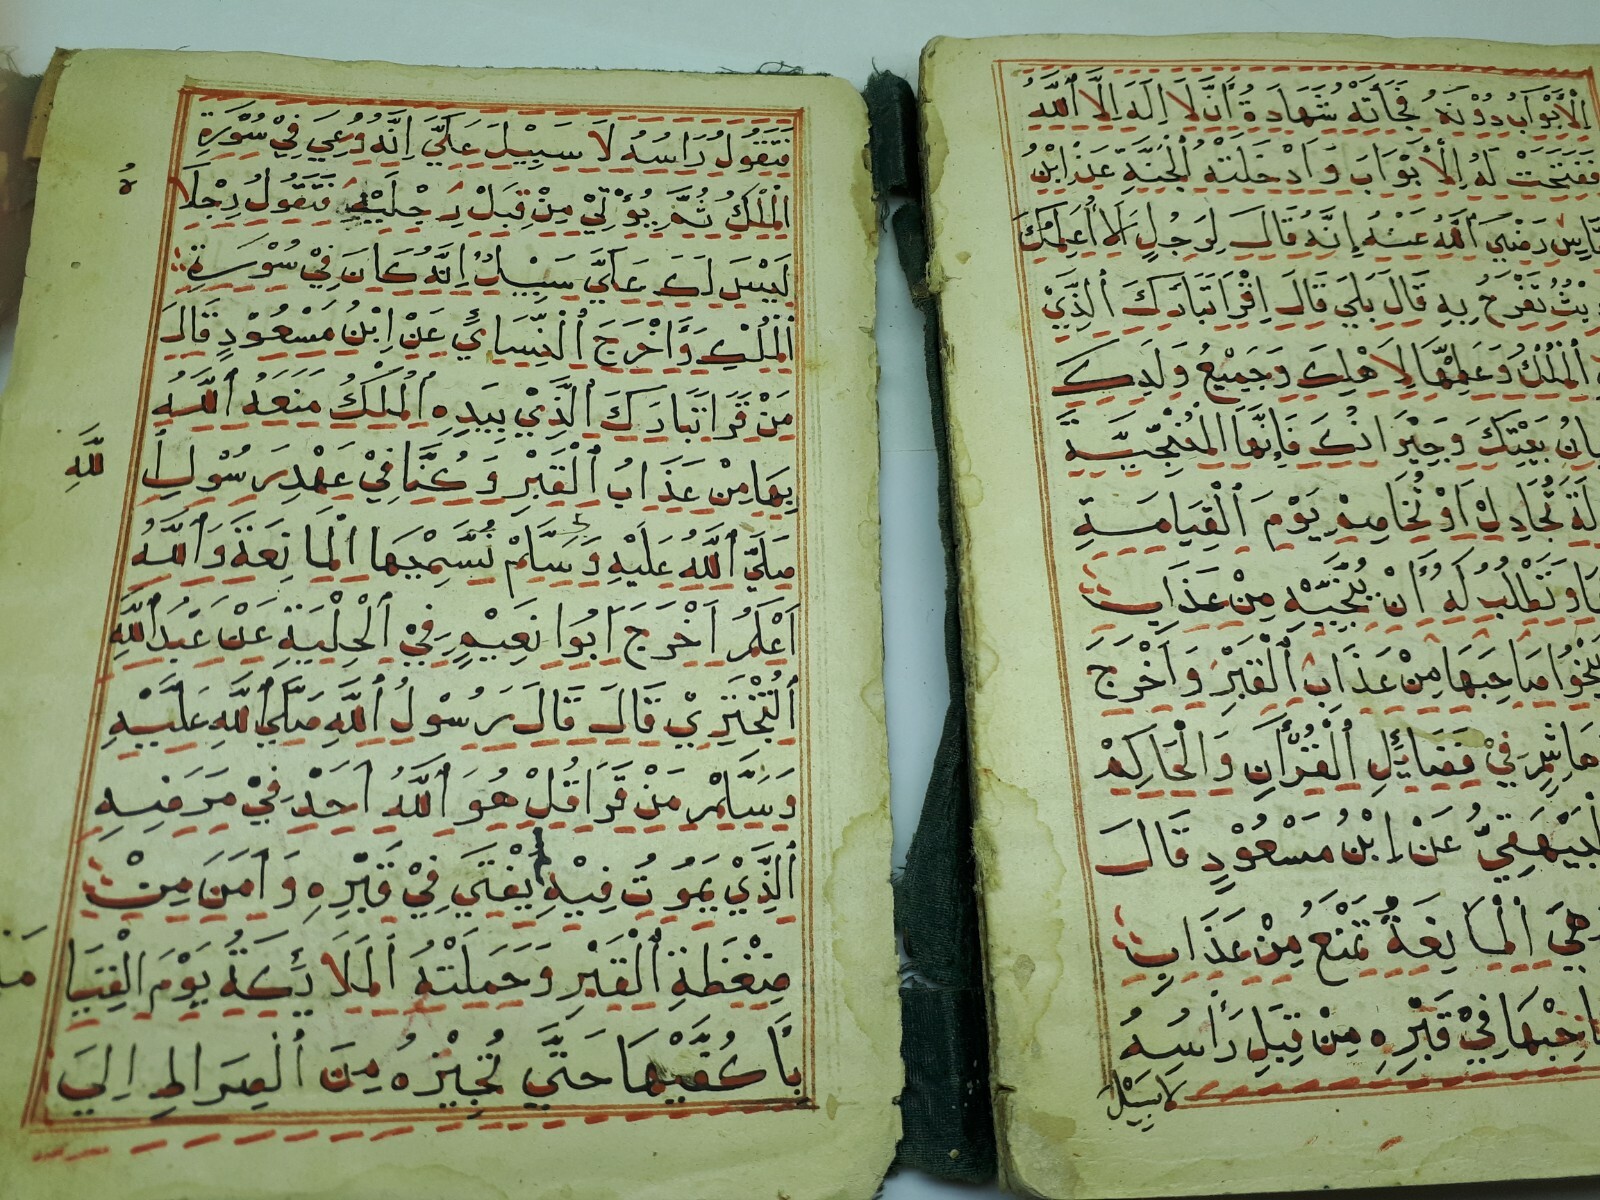 اِلْاَبْوَابُ دُوْنَهُ فَجَاءَتْهُ شَهَادَةُ اَنْ لَا اِلٰهَ اِلَّا اللّٰهُ
فَفَتَحَتْ لَهُ اِلْاَبْوَابَ وَاَدْخَلَتْهُ الْجَنَّةَ عَنْ اِبْنُ
رَضِيَ اللّٰهُ عَنْهُ اِنَّهُ قَالَ لِرَجُلٍ اَلَا اُعَلِّمُكَ
تَفْرَحُ بِهِ قَالَ بَلٰى قَالَ اِقْرَا تَبَارَكَ الَّذِيْ
الْمُلْكُ وَعَلِّمْهَا لِاَهْلِكَ وَجَمِيْعُ وَلَدِكَ
بَيْتِكَ وَجِيْرَانُكَ فَاِنَّهَا الْمُنْجِيَّةُ
تُجَادِلُ اَوْ تُخَاصِمُ يَوْمَ الْقِيَامَةِ
وَتَطْلُبُ لَهُ اَنْ يُنْجِيَهُ مِنْ عَذَابِ
صَاحِبَهَا مِنْ عَذَابِ الْقَبْرِ وَاَخْرَجَ
فِيْ فَضَائِلِ الْقُرْاٰنِ وَالْحَاكِمْ
عَنْ اِبْنُ مَسْعُوْدٍ قَالَ
الْمَانِعَةُ تَمْنَعُ مِنْ عَذَابِ
فِيْ قَبْرِهِ مِنْ قِبَلِ رَاْسُهُ
لَا سَبِيْلَ
فَتَقُوْلُ رَاسُهُ لَا سَبِيْلَ عَلَيَّ اِنَّهُ وُعِيَ فِيْ سُوْرَةِ
الْمُلْكُ ثُمَّ يُؤْتٰي مِنْ قِبَلْ رِجْلَيْهِ فَتَقُوْلُ رِجْلَا
هُ
لَيْسَ لَكَ عَلَيَّ سَبِيْلُ اِنَّهُ كَانَ فِيْ سُوْرَةِ
الْمُلْكِ وَاَخْرَجَ النِّسَائِيْ عَنْ اِبْنُ مَسْعُوْدٍ قَالَ
مَنْ قَرَا تَبَارَكَ الَّذِيْ بِيَدِهِ الْمُلْكُ مَنَعَهُ اللّٰهُ
بِهَا مِنْ عَذَابُ الْقَبْرِ وَكُنَّا فِيْ عَهْدِ رَسُوْلِ ا
للّٰهِ
صَلَّى اللّٰهُ عَلَيْهِ وَسَلَّمْ نُسَمِّيْهَا الْمَانِعَةَ وَاللّٰهُ
اَعْلَمُ اَخْرَجَ اَبُوا نَعِيْمٍ فِيْ الْحِلْيَةِ عَنْ عَبْدِ اللّٰهِ
قَالَ قَالَ رَسُوْلُ اللّٰهِ صَلَّى اللّٰهِ عَلَيْهِ
وَسَلَّمْ مَنْ قَرَا قُلْ هُوَ اللّٰهُ اَحَدْ فِيْ مَرَضِهِ
الَّذِيْ يَمُوْتُ فِيْهِ لَمْ يُفْتَنْ فِيْ قَبْرِهِ وَاَمَنَ مِنْ
ضِغْطَةِ الْقَبْرِ وَحَمَلَتْهُ الْمَلَائِكَةُ يَوْمَ الْقِيَا
مَةِ
بِاَكُفِّهَا حَتّٰى تُجِيْزَهُ مِنَ الْصِرَاطِ اِلَى